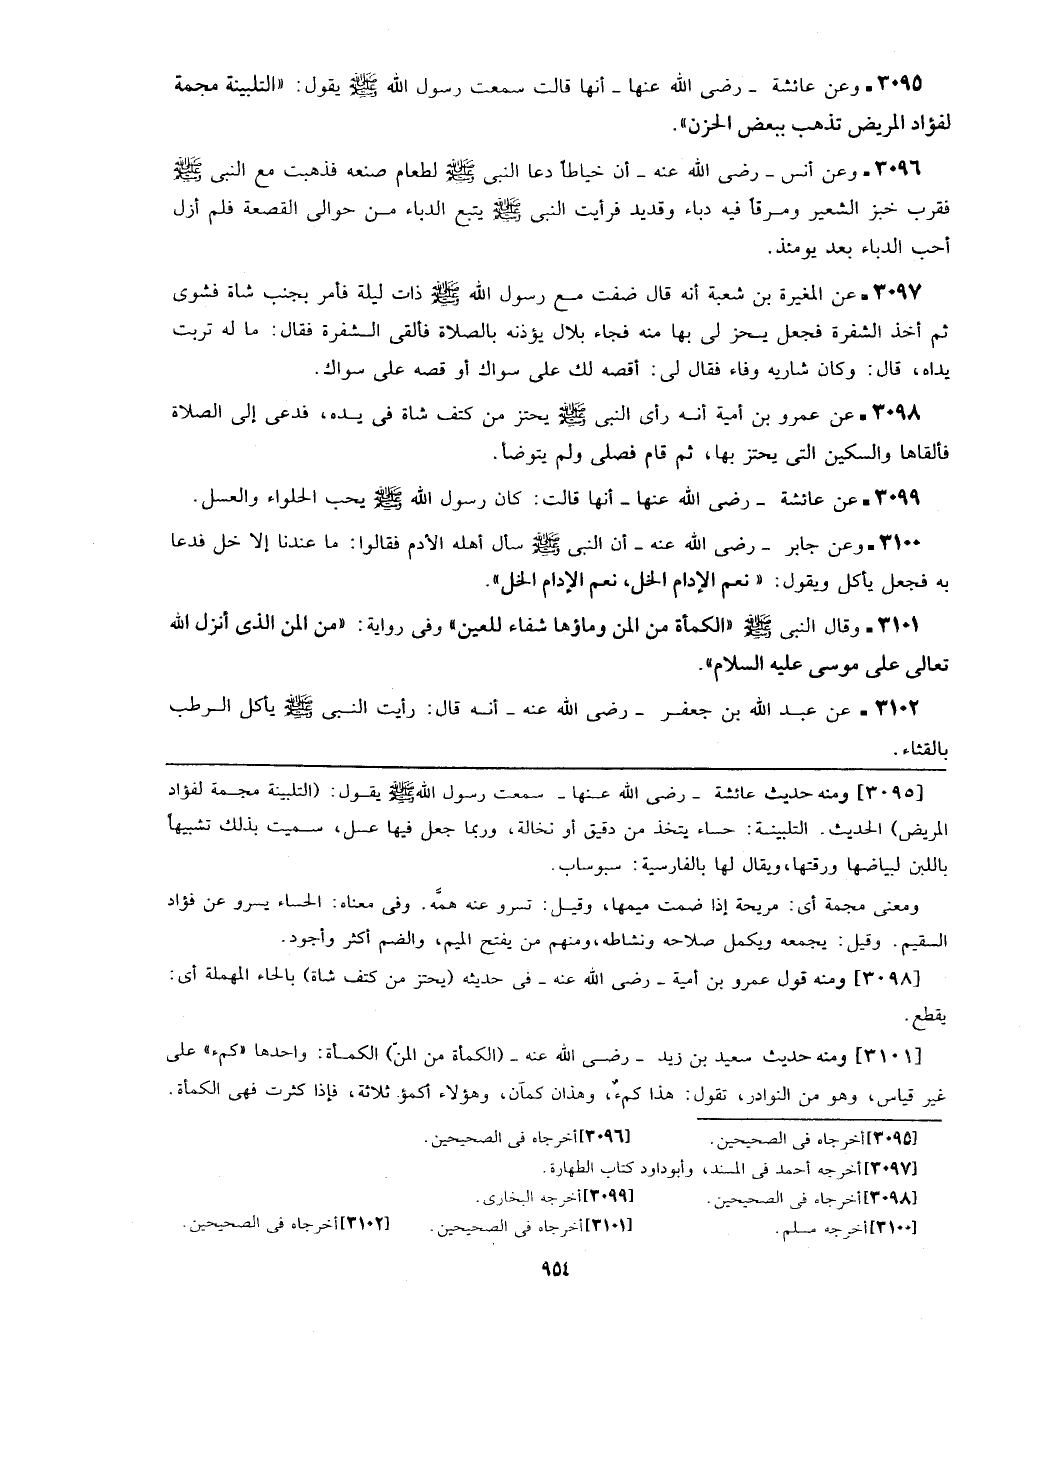 ٣٠٩٥ ـ وعن عائشة ـ رضى الله عنها ـ أنها قالت سمعت رسول الله ﷺ يقول: «التلبينة مجمة
لفؤاد المريض تذهب ببعض الحزن».
٣٠٩٦ ـ وعن أنس ـ رضى الله عنه ـ أن خياطاً دعا النبى ﷺ لطعام صنعه فذهبت مع النبى ﷺ
فقرب خبز الشعير ومرقاً فيه دباء وقديد فرأيت النبى ﷺ يتبع الدباء من حوالى القصعة فلم أزل
أحب الدباء بعد يومئذ.
٣٠٩٧ ـ عن المغيرة بن شعبة أنه قال ضفت مع رسول الله ﷺ ذات ليلة فأمر بجنب شاة فشوى
ثم أخذ الشفرة فجعل يحز لى بها منه فجاء بلال يؤذنه بالصلاة فألقى الشفرة فقال: ما له تربت
يداه، قال: وكان شاربه وفاء فقال لى: أقصه لك على سواك أو قصه على سواك.
٣٠٩٨ ـ عن عمرو بن أمية أنه رأى النبى ﷺ يحتز من كتف شاة فى يده، فدعى إلى الصلاة
فألقاها والسكين التى يحتز بها، ثم قام فصلى ولم يتوضأ.
٣٠٩٩ ـ عن عائشة ـ رضى الله عنها ـ أنها قالت: كان رسول الله ﷺ يحب الحلواء والعسل.
٣١٠٠ ـ وعن جابر ـ رضى الله عنه ـ أن النبى ﷺ سأل أهله الأدم فقالوا: ما عندنا إلا خل فدعا
به فجعل يأكل ويقول: « نعم الإدام الخل، نعم الإدام الخل».
٣١٠١ ـ وقال النبى ﷺ «الكمأة من المن وماؤها شفاء للعين» وفى رواية: «من المن الذى أنزل الله
تعالى على موسى عليه السلام».
٣١٠٢ ـ عن عبد الله بن جعفر ـ رضى الله عنه ـ أنه قال: رأيت النبى ﷺ يأكل الرطب
بالقثاء.
[٣٠٩٥] ومنه حديث عائشة ـ رضى الله عنها ـ سمعت رسول الله ﷺ يقول: (التلبينة مجمة لفؤاد
المريض) الحديث. التلبينة: حساء يتخذ من دقيق أو نخالة، وربما جعل فيها عسل، سميت بذلك تشبيهاً
باللبن لبياضها ورقتها، ويقال لها بالفارسية: سبوساب.
ومعنى مجمة أى: مريحة إذا ضمت ميمها، وقيل: تسرو عنه همَّه. وفى معناه: الحساء يسرو عن فؤاد
السقيم. وقيل: يجمعه ويكمل صلاحه ونشاطه، ومنهم من يفتح الميم، والضم أكثر وأجود.
[٣٠٩٨] ومنه قول عمرو بن أمية ـ رضى الله عنه ـ فى حديثه (يحتز من كتف شاة) بالحاء المهملة أى:
يقطع.
[٣١٠١] ومنه حديث سعيد بن زيد ـ رضى الله عنه ـ (الكمأة من المنّ) الكمأة: واحدها «كمء» على
غير قياس، وهو من النوادر، تقول: هذا كمءٌ، وهذان كمآن، وهؤلاء أكمؤ ثلاثة، فإذا كثرت فهى الكمأة.
[٣٠٩٥] أخرجاه فى الصحيحين. [٣٠٩٦] أخرجاه فى الصحيحين.
[٣٠٩٧] أخرجه أحمد فى المسند، وأبوداود كتاب الطهارة.
[٣٠٩٨] أخرجاه فى الصحيحين. [٣٠٩٩] أخرجه البخارى.
[٣١٠٠] أخرجه مسلم. [٣١٠١] أخرجاه فى الصحيحين. [٣١٠٢] أخرجاه فى الصحيحين.
٩٥٤